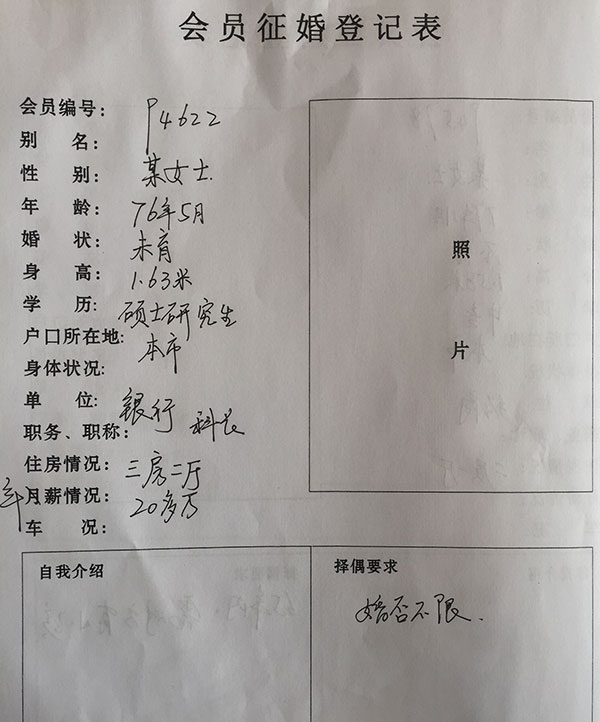 会员征婚登记表
会员编号: P4622
别 名:
性 别: 某女士.
年 龄: 76年5月
婚 状: 未育
身 高: 1.63米
学 历: 硕士研究生
户口所在地: 本市
身体状况:
单 位: 银行 科长
职务、职称:
住房情况: 三房二厅
年月薪情况: 20多万
车 况:
照
片
自我介绍
择偶要求
婚否不限.